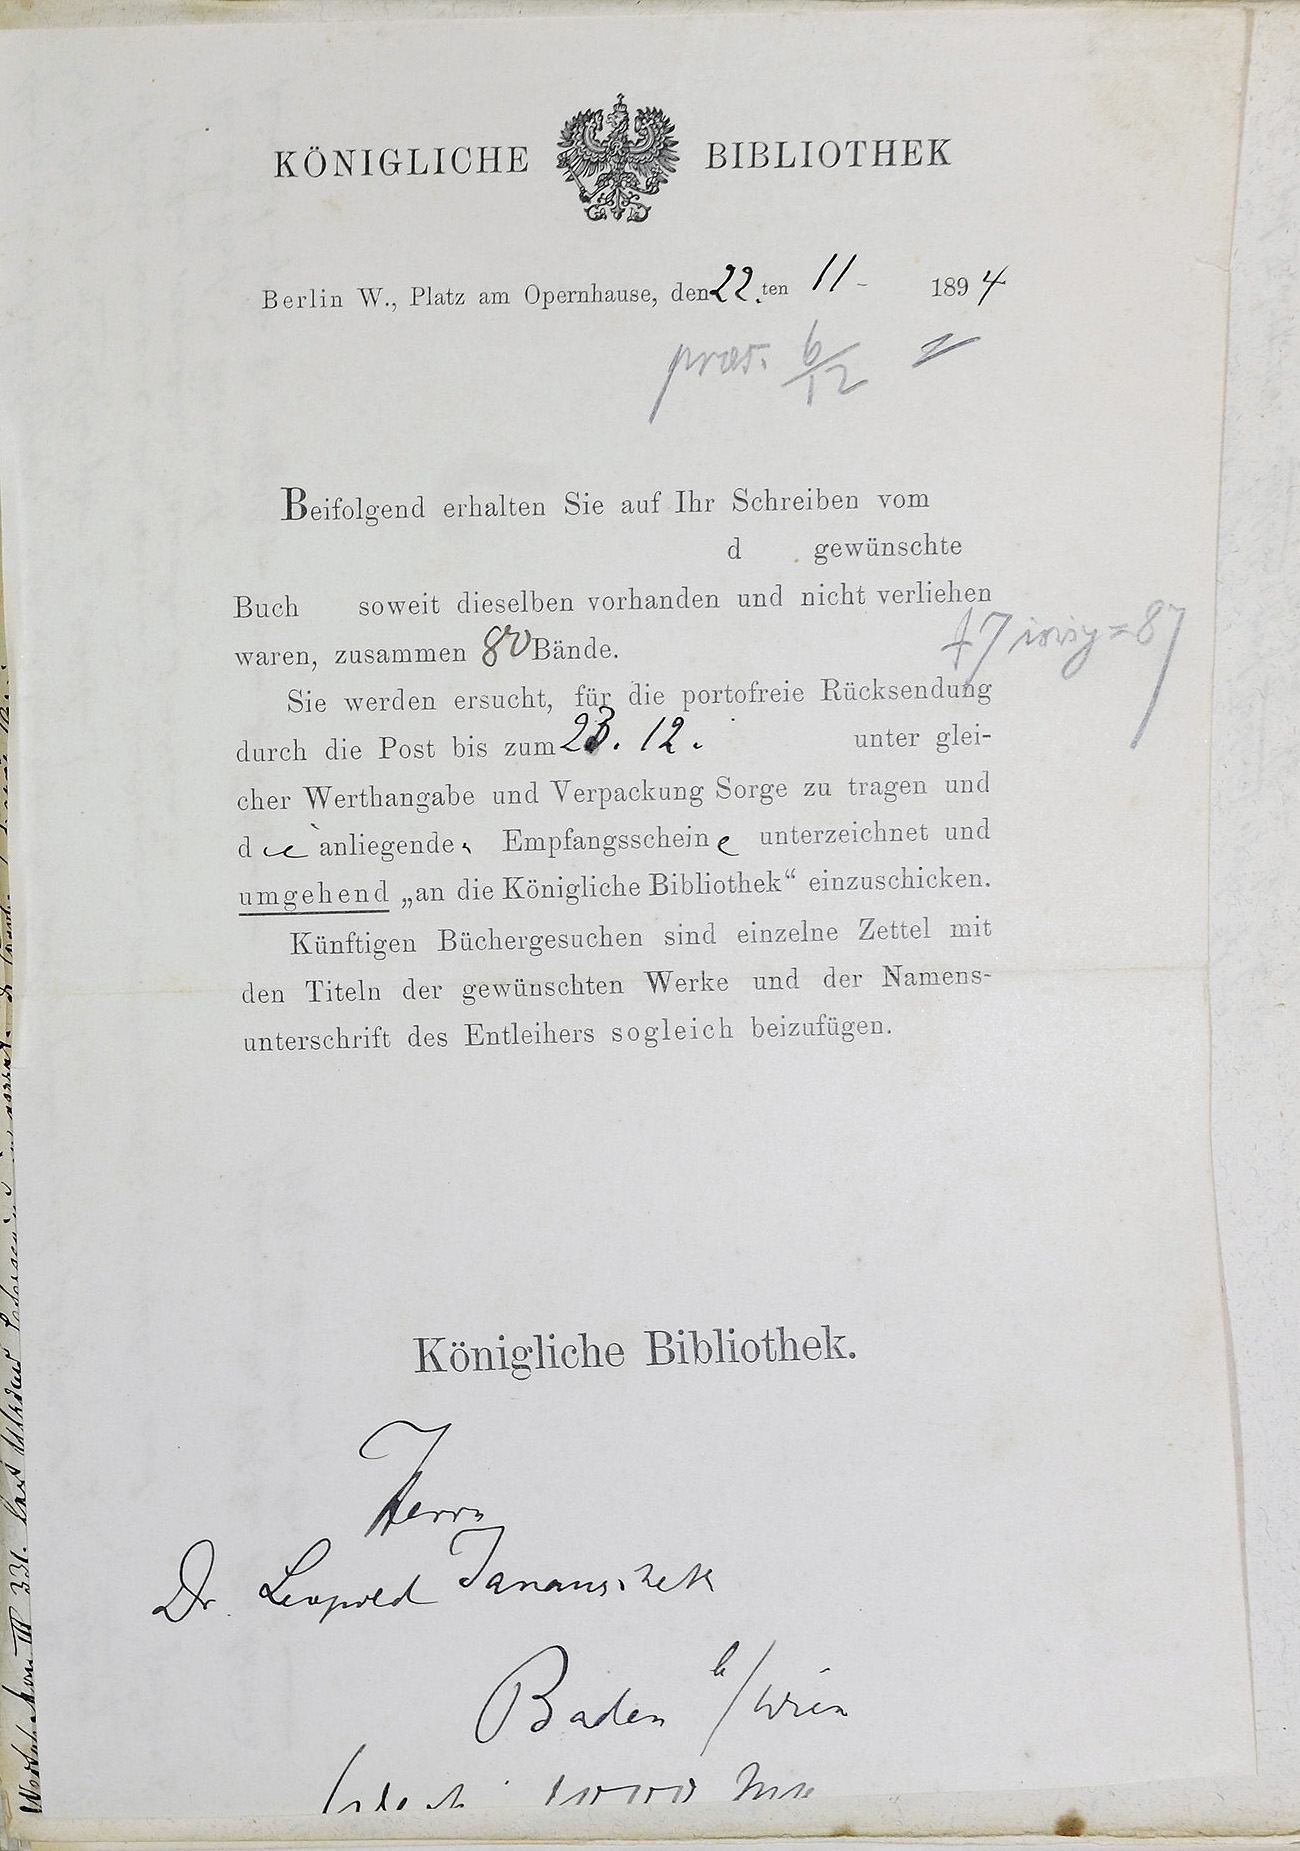 KÖNIGLICHE BIBLIOTHEK
Berlin W., Platz am Opernhause, den 22.ten 11 - 1894
praes. 6/12
Beifolgend erhalten Sie auf Ihr Schreiben vom
d gewünschte
Buch soweit dieselben vorhanden und nicht verliehen
waren, zusammen 80 Bände.
+7 = 87
Sie werden ersucht, für die portofreie Rücksendung
durch die Post bis zum 23. 12. unter glei-
cher Werthangabe und Verpackung Sorge zu tragen und
die anliegende Empfangsscheine unterzeichnet und
umgehend „an die Königliche Bibliothek“ einzuschicken.
Künftigen Büchergesuchen sind einzelne Zettel mit
den Titeln der gewünschten Werke und der Namens-
unterschrift des Entleihers sogleich beizufügen.
Königliche Bibliothek.
Herrn
Dr. Leopold Janauschek
Baden b/Wien